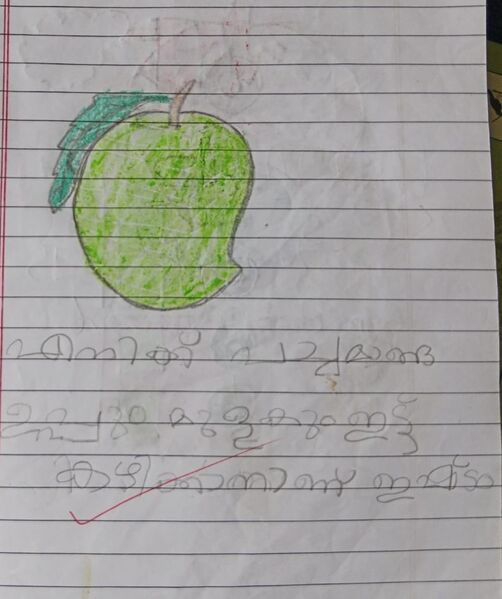 എനിക്ക് പച്ചമാങ്ങ
ഉപ്പും മുളകും ഇട്ട്
കഴിക്കാനാണ് ഇഷ്ടം